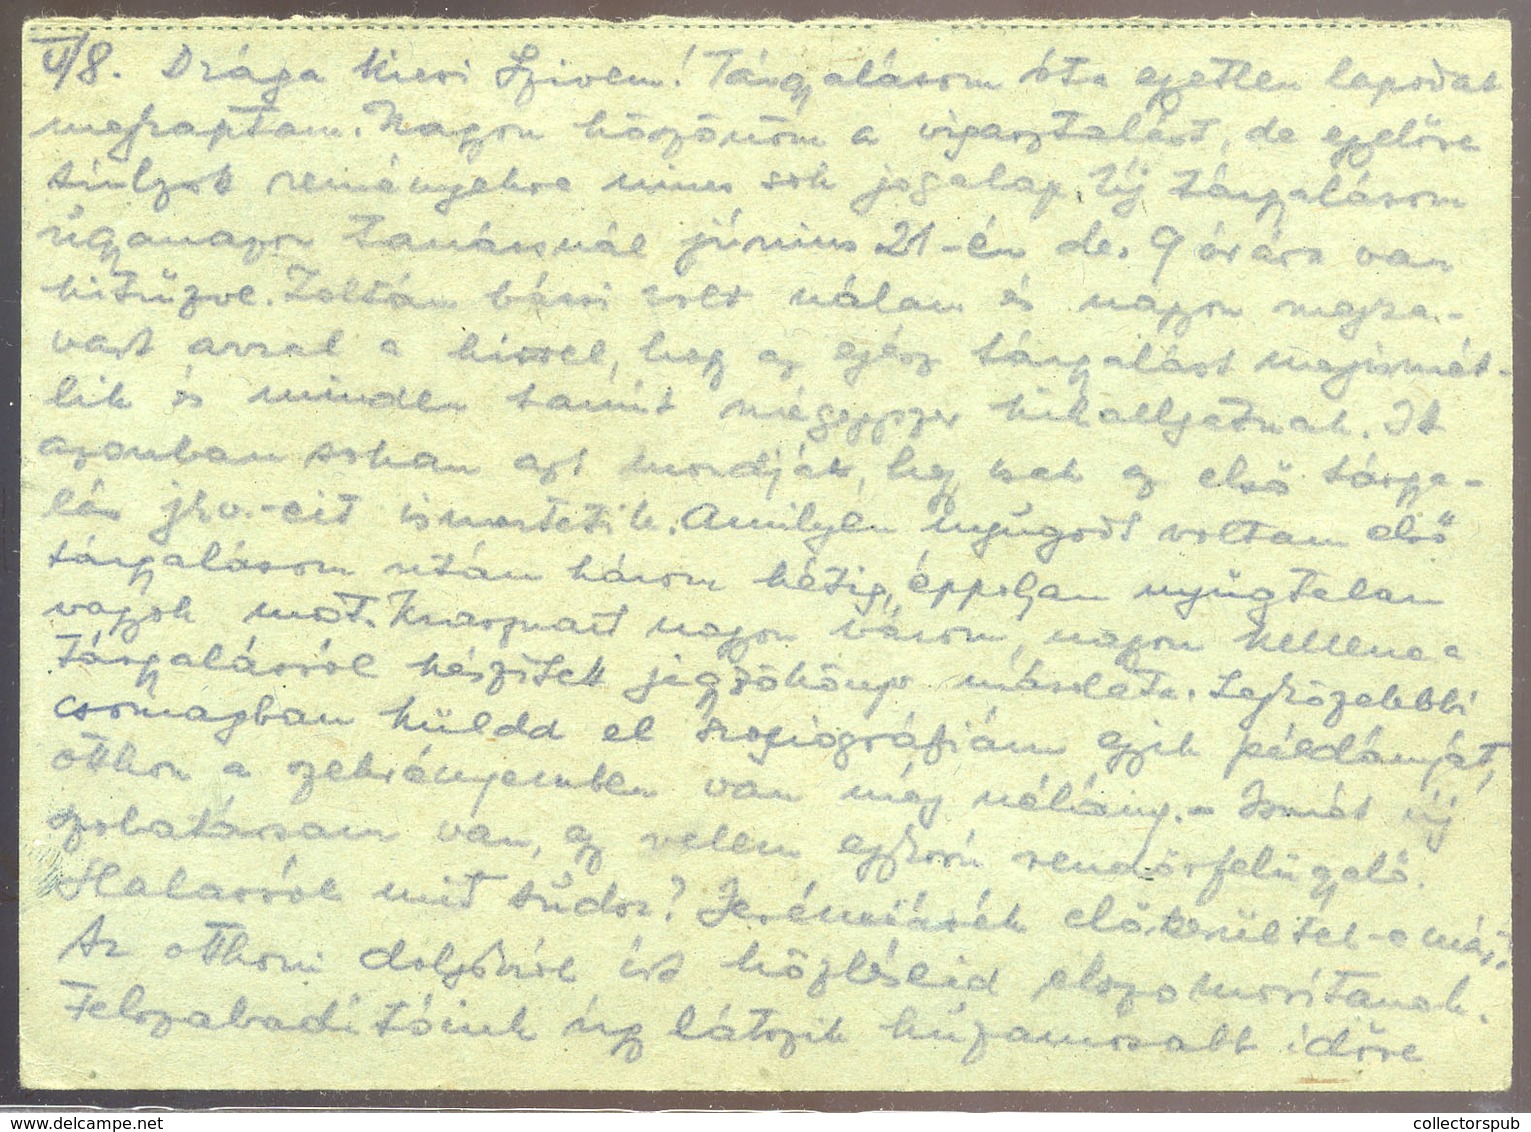 V/8. Drága Kicsi Szivem! Tárgyalásom óta egyetlen lapodat
megkaptam. Nagyon köszönöm a vigasztalást, de egyelőre
túlzott reményekre nincs sok jogalap. Új tárgyalásom
úgyanazon tanácsnál június 21-én de. 9 órára van
kitűzve. Zoltán bácsi volt nálam és nagyon megza-
vart azzal a hírrel, hogy az egész tárgyalást megismét-
lik és minden tanút mégegyszer kihallgatnak. Itt
azonban sokan azt mondják, hogy csak az első tárgya-
lás jkv.-eit ismertetik. Amilyen nyúgodt voltam első
tárgyalásom után három hétig, éppolyan nyúgtalan
vagyok most. nagyon várom, nagyon kellene a
tárgyalásról készített jegyzőkönyv másolata. Legközelebbi
csomagban küldd el egyik példányát,
otthon a szekrényemben van még néhány. - Ismét új
szobatársam van, egy velem egykorú rendőrfelügyelő.
Halasról mit túdsz? előkerültek-e már?
Az otthoni dolgokról írt közléseid elszomorítanak.
Felszabadítóink úgy látszik húzamosabb időre
collectorspub